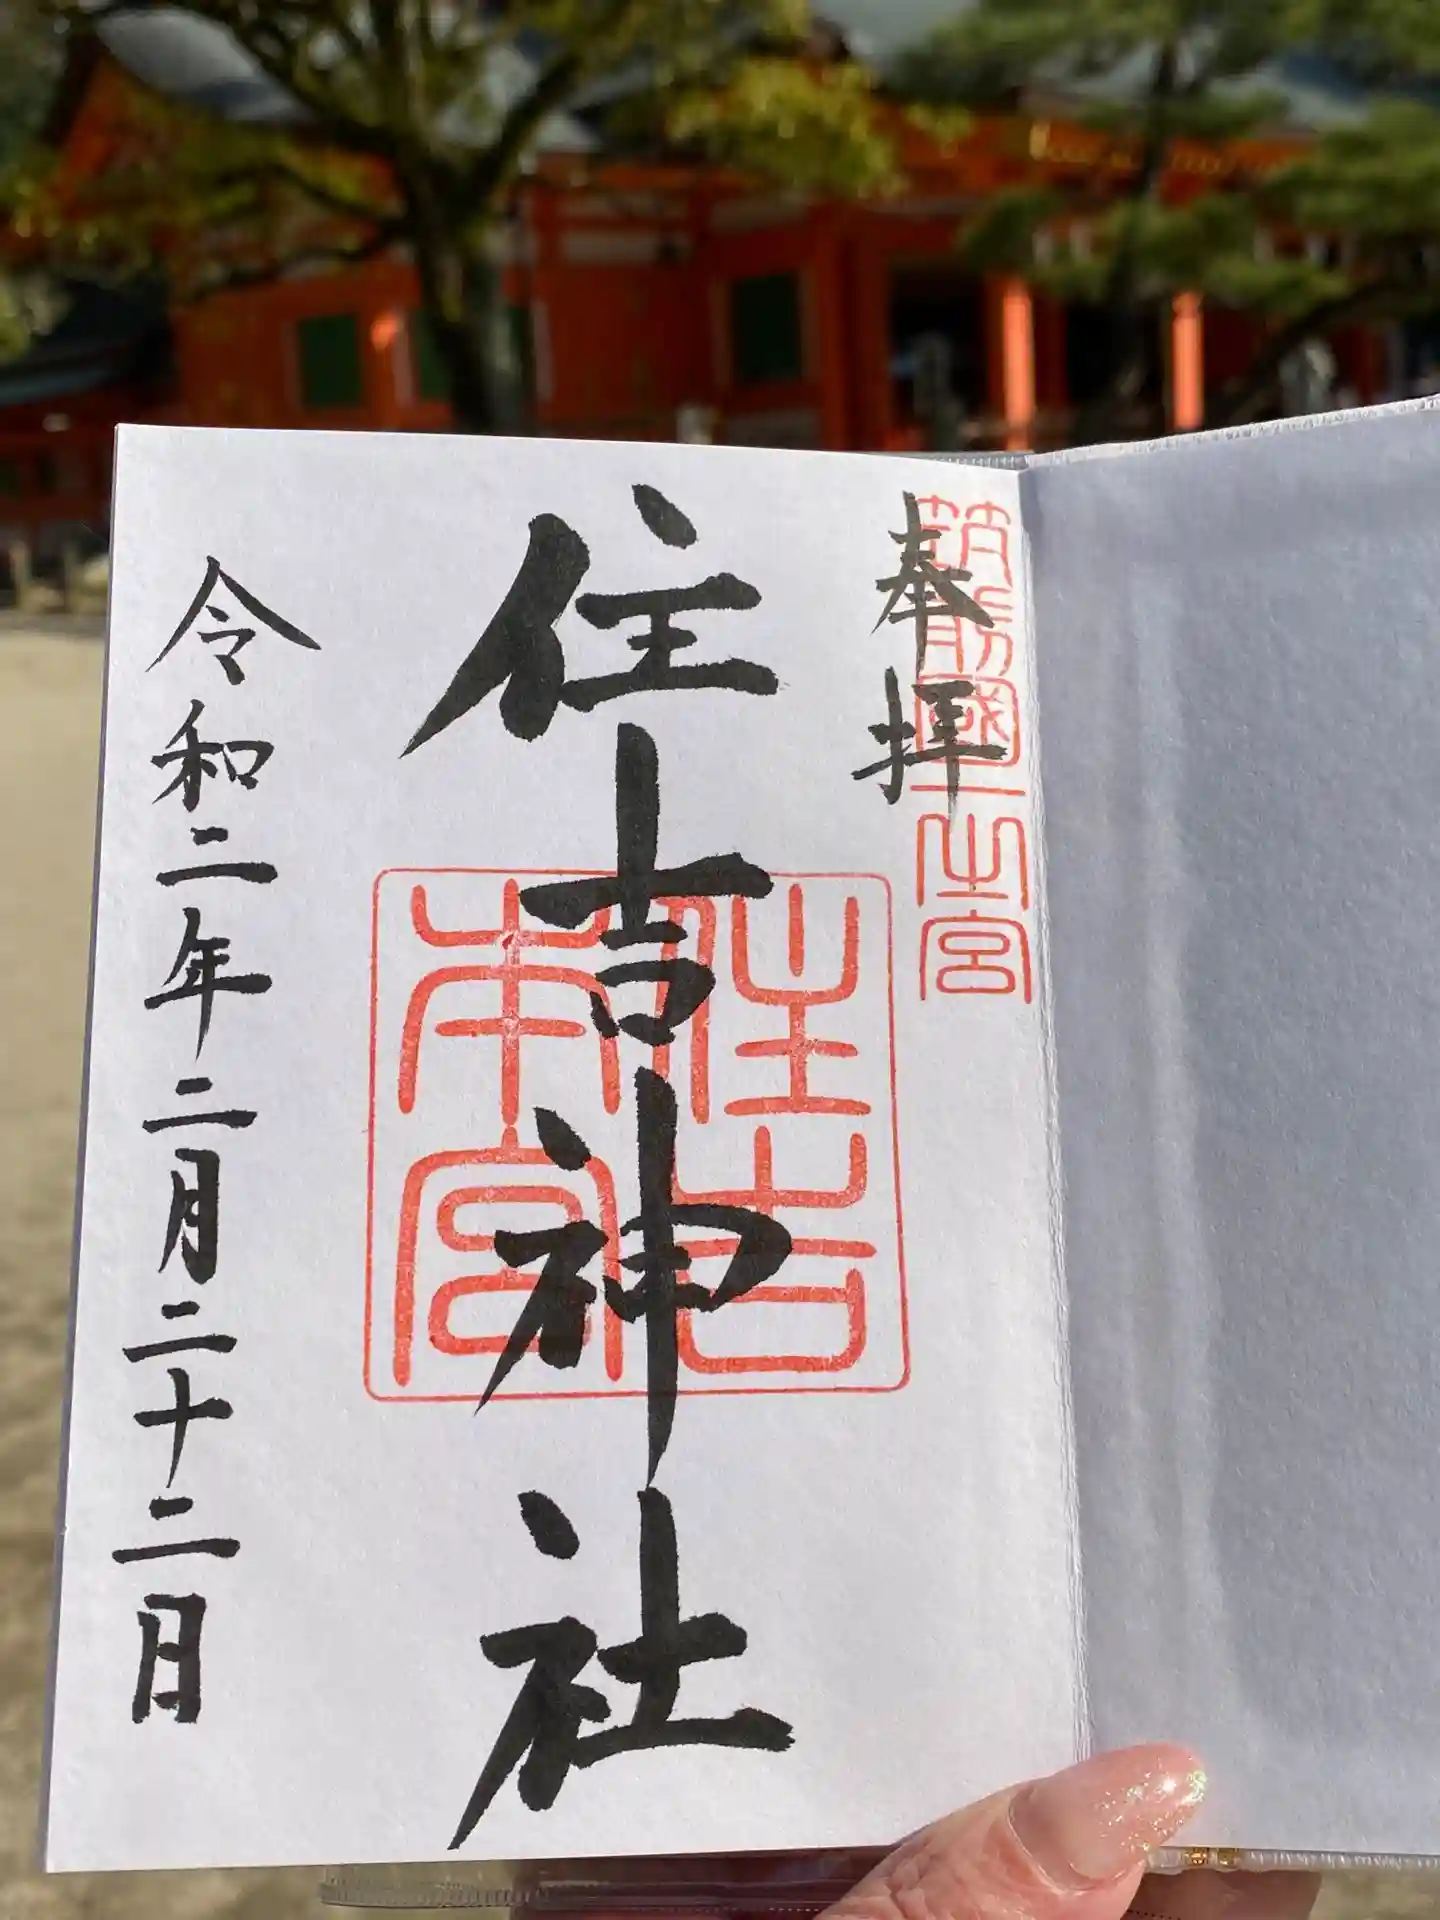 奉拝
筑前國一之宮
住吉神社
住吉
本宮
令和二年二月二十二日